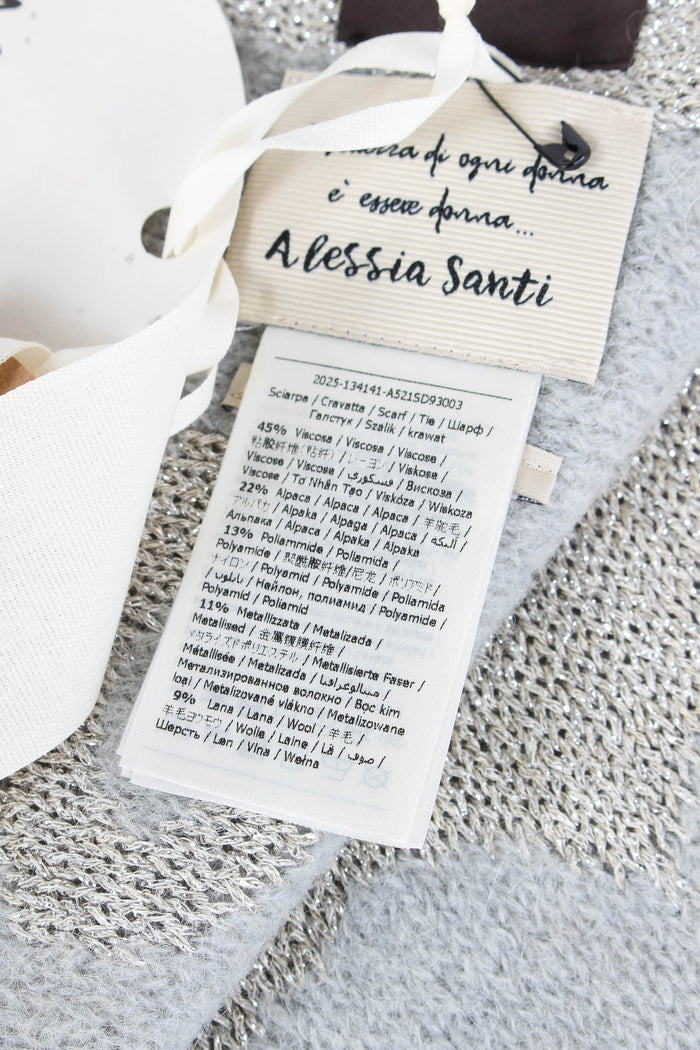 di ogni donna
è essere donna...
Alessia Santi
2025-134141-A521SD93003
Sciarpa / Cravatta / Scarf / Tie / Шарф /
Галстук / Szalik / krawat
45% Viscosa / Viscosa / Viscose /
粘胶纤维(粘纤) / レーヨン / Viskose /
Viscose / Viscose / فسكوزي / Вискоза /
Viscose / Tơ Nhân Tạo / Viskóza / Wiskoza
22% Alpaca / Alpaca / Alpaca / 羊驼毛 /
アルパカ / Alpaka / Alpaga / Alpaca / ألبكة /
Альпака / Alpaca / Alpaka / Alpaka
13% Poliammide / Poliamida /
Polyamide / 聚酰胺纤维/尼龙 / ポリアミド/
ナイロン / Polyamid / Polyamide / Poliamida
/ نايلون / Нейлон, полиамид / Polyamide /
Polyamid / Poliamid
11% Metallizzata / Metalizada /
Metallised / 金属镀膜纤维 /
メタライズドポリエステル / Metallisierte Faser /
Métallisée / Metalizada /
Метализированное волокно / Bọc kim
loại / Metalizované vlákno / Metalizowane
9% Lana / Lana / Wool / 羊毛 /
羊毛ヨウモウ / Wolle / Laine / Lã / صوف /
Шерсть / Len / Vlna / Wełna